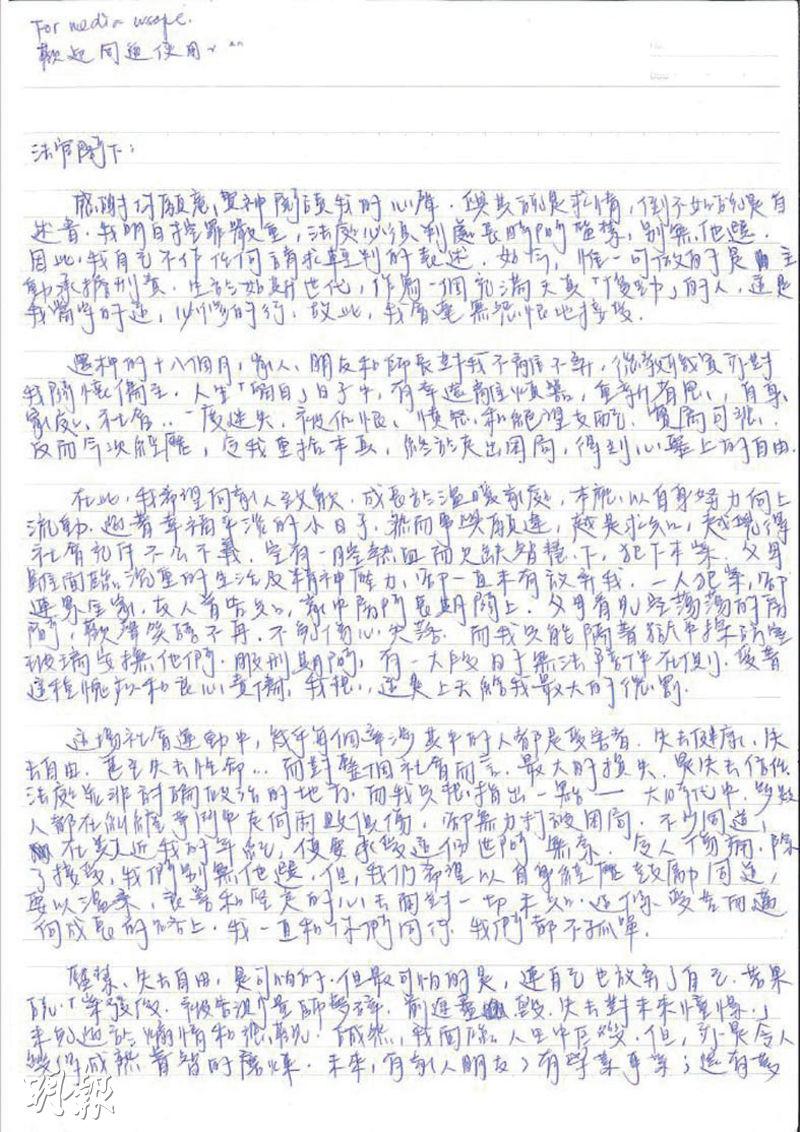 For media usage.
歡迎同道使用
法官閣下：
感謝 願意費神閱讀我的心聲．與其說是求情，倒不如說是自
述書．我明白控罪嚴重，法庭必須判處長時間監禁，別無他選．
因此，我自己不作任何請求輕判的表述．如今，惟一可做的是 主
動承擔刑責．生於如斯世代，作為一個充滿天真「 」的人，這是
我當守的道，必修的行．故此，我會毫無怨恨地接受．
還押的十八個月，家人、朋友和師長對我不離不棄，
我關懷備至．人生「 」日子中，有幸遠離煩囂，重新省思，自身、
家庭、社會…一度迷失，被仇恨、憤怒和絕望支配，實屬可悲．
反而今次經歷，令我重拾本真，終於走出困局，得到心靈上的自由．
在此，我希望向家人致歉．成長於溫暖家庭，本應以自身努力向上
流動，過著幸福平淡的小日子．然而事與願違，越是求知，越覺得
社會充斥不公不義．空有一腔熱血而欠缺智慧下，犯下本案．父母
雖面臨沉重的生活及精神壓力，卻一直未有放棄我．一人犯案，卻
連累全家．友人曾告知，家中房門長期關上．父母看見空蕩蕩的房
間，歡聲笑語不再，不免傷心失落．而我只能隔著獄中探訪室
玻璃安撫他們．服刑期間，有一大段日子無法 伴在側．受著
這種愧疚和良心責備，我想，這是上天給我最大的懲罰．
這場社會運動中，幾乎每個牽涉其中的人都是受害者．失去健康、失
去自由、甚至失去性命…而對整個社會而言，最大的損失，是失去信任．
法庭並非討論政治的地方，而我只想指出一點——大時代中，多數
人都在糾纏爭鬥中走向兩敗俱傷，卻無力打破困局．不少同道，
在 近我的年紀，便要承受這份世間無奈．令人傷痛．除
了接受，我們別無他選．但，我們希望以自身經歷鼓勵同道，
要以溫柔，良善和堅定的心去面對一切未知．
向成長的路上，我一直和你們同行．我們都不孤單．
監禁、失去自由，是可怕的．但最可怕的是，連自己也放棄了自己．若果
說，「 前途盡毀，失去對未來憧憬．」
未免過於 和悲觀．誠然，我面臨人生中巨變．但，亦是令人
變得成熟睿智的磨煉．未來，有家人朋友；有學業事業；還有
明報